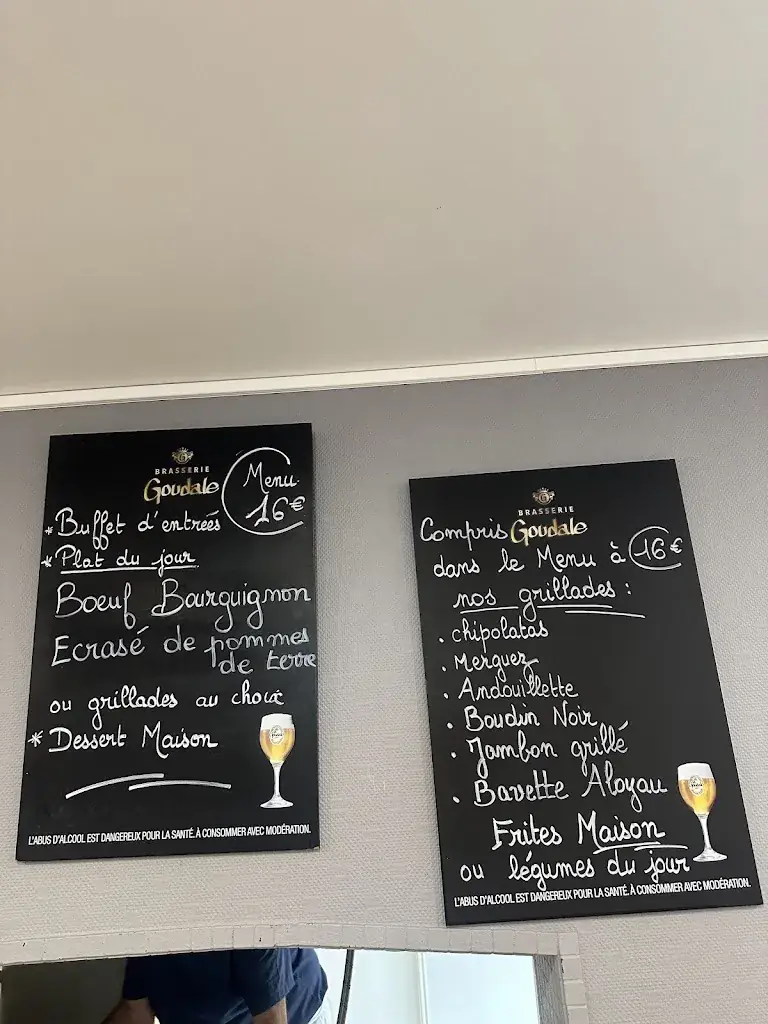 BRASSERIE
Goudale
Menu
16€
* Buffet d'entrées
* Plat du jour
Boeuf Bourguignon
Ecrasé de pommes
de terre
ou grillades au choix
* Dessert Maison
L'ABUS D'ALCOOL EST DANGEREUX POUR LA SANTÉ. À CONSOMMER AVEC MODÉRATION.
BRASSERIE
Compris Goudale
dans le Menu à 16€
nos grillades :
. chipolatas
. Merguez
. Andouillette
. Boudin Noir
. Jambon grillé
. Bavette Aloyau
Frites Maison
ou légumes du jour
L'ABUS D'ALCOOL EST DANGEREUX POUR LA SANTÉ. À CONSOMMER AVEC MODÉRATION.